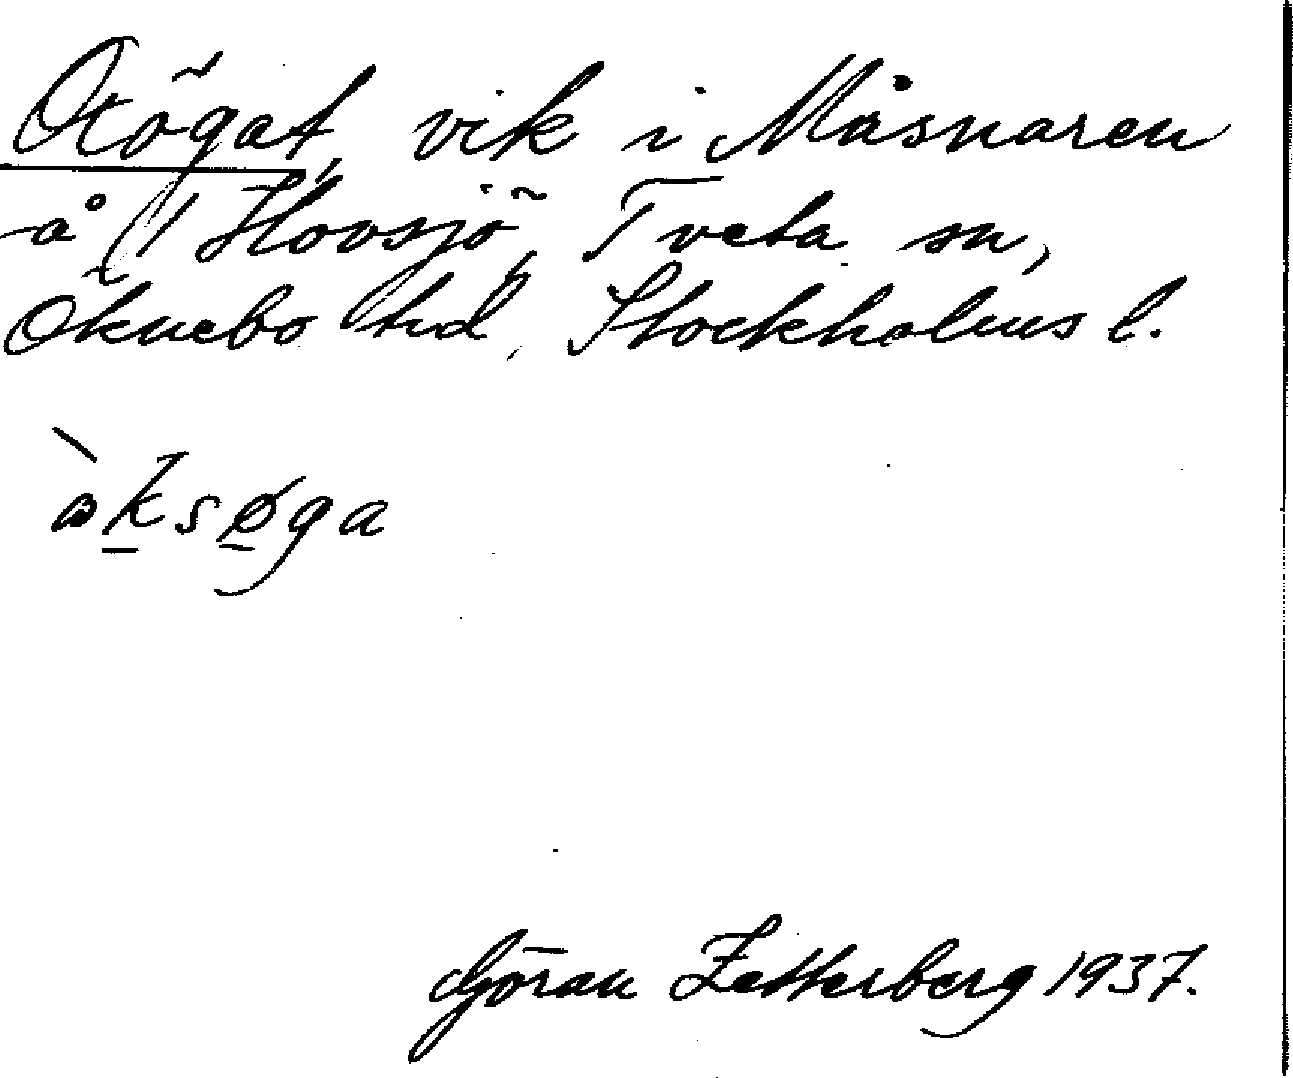 vik i Måsnaren
å (1 Hovsjö, Tveta sn,
Öknebo hd, Stockholms l.
Göran Zetterberg 1937.